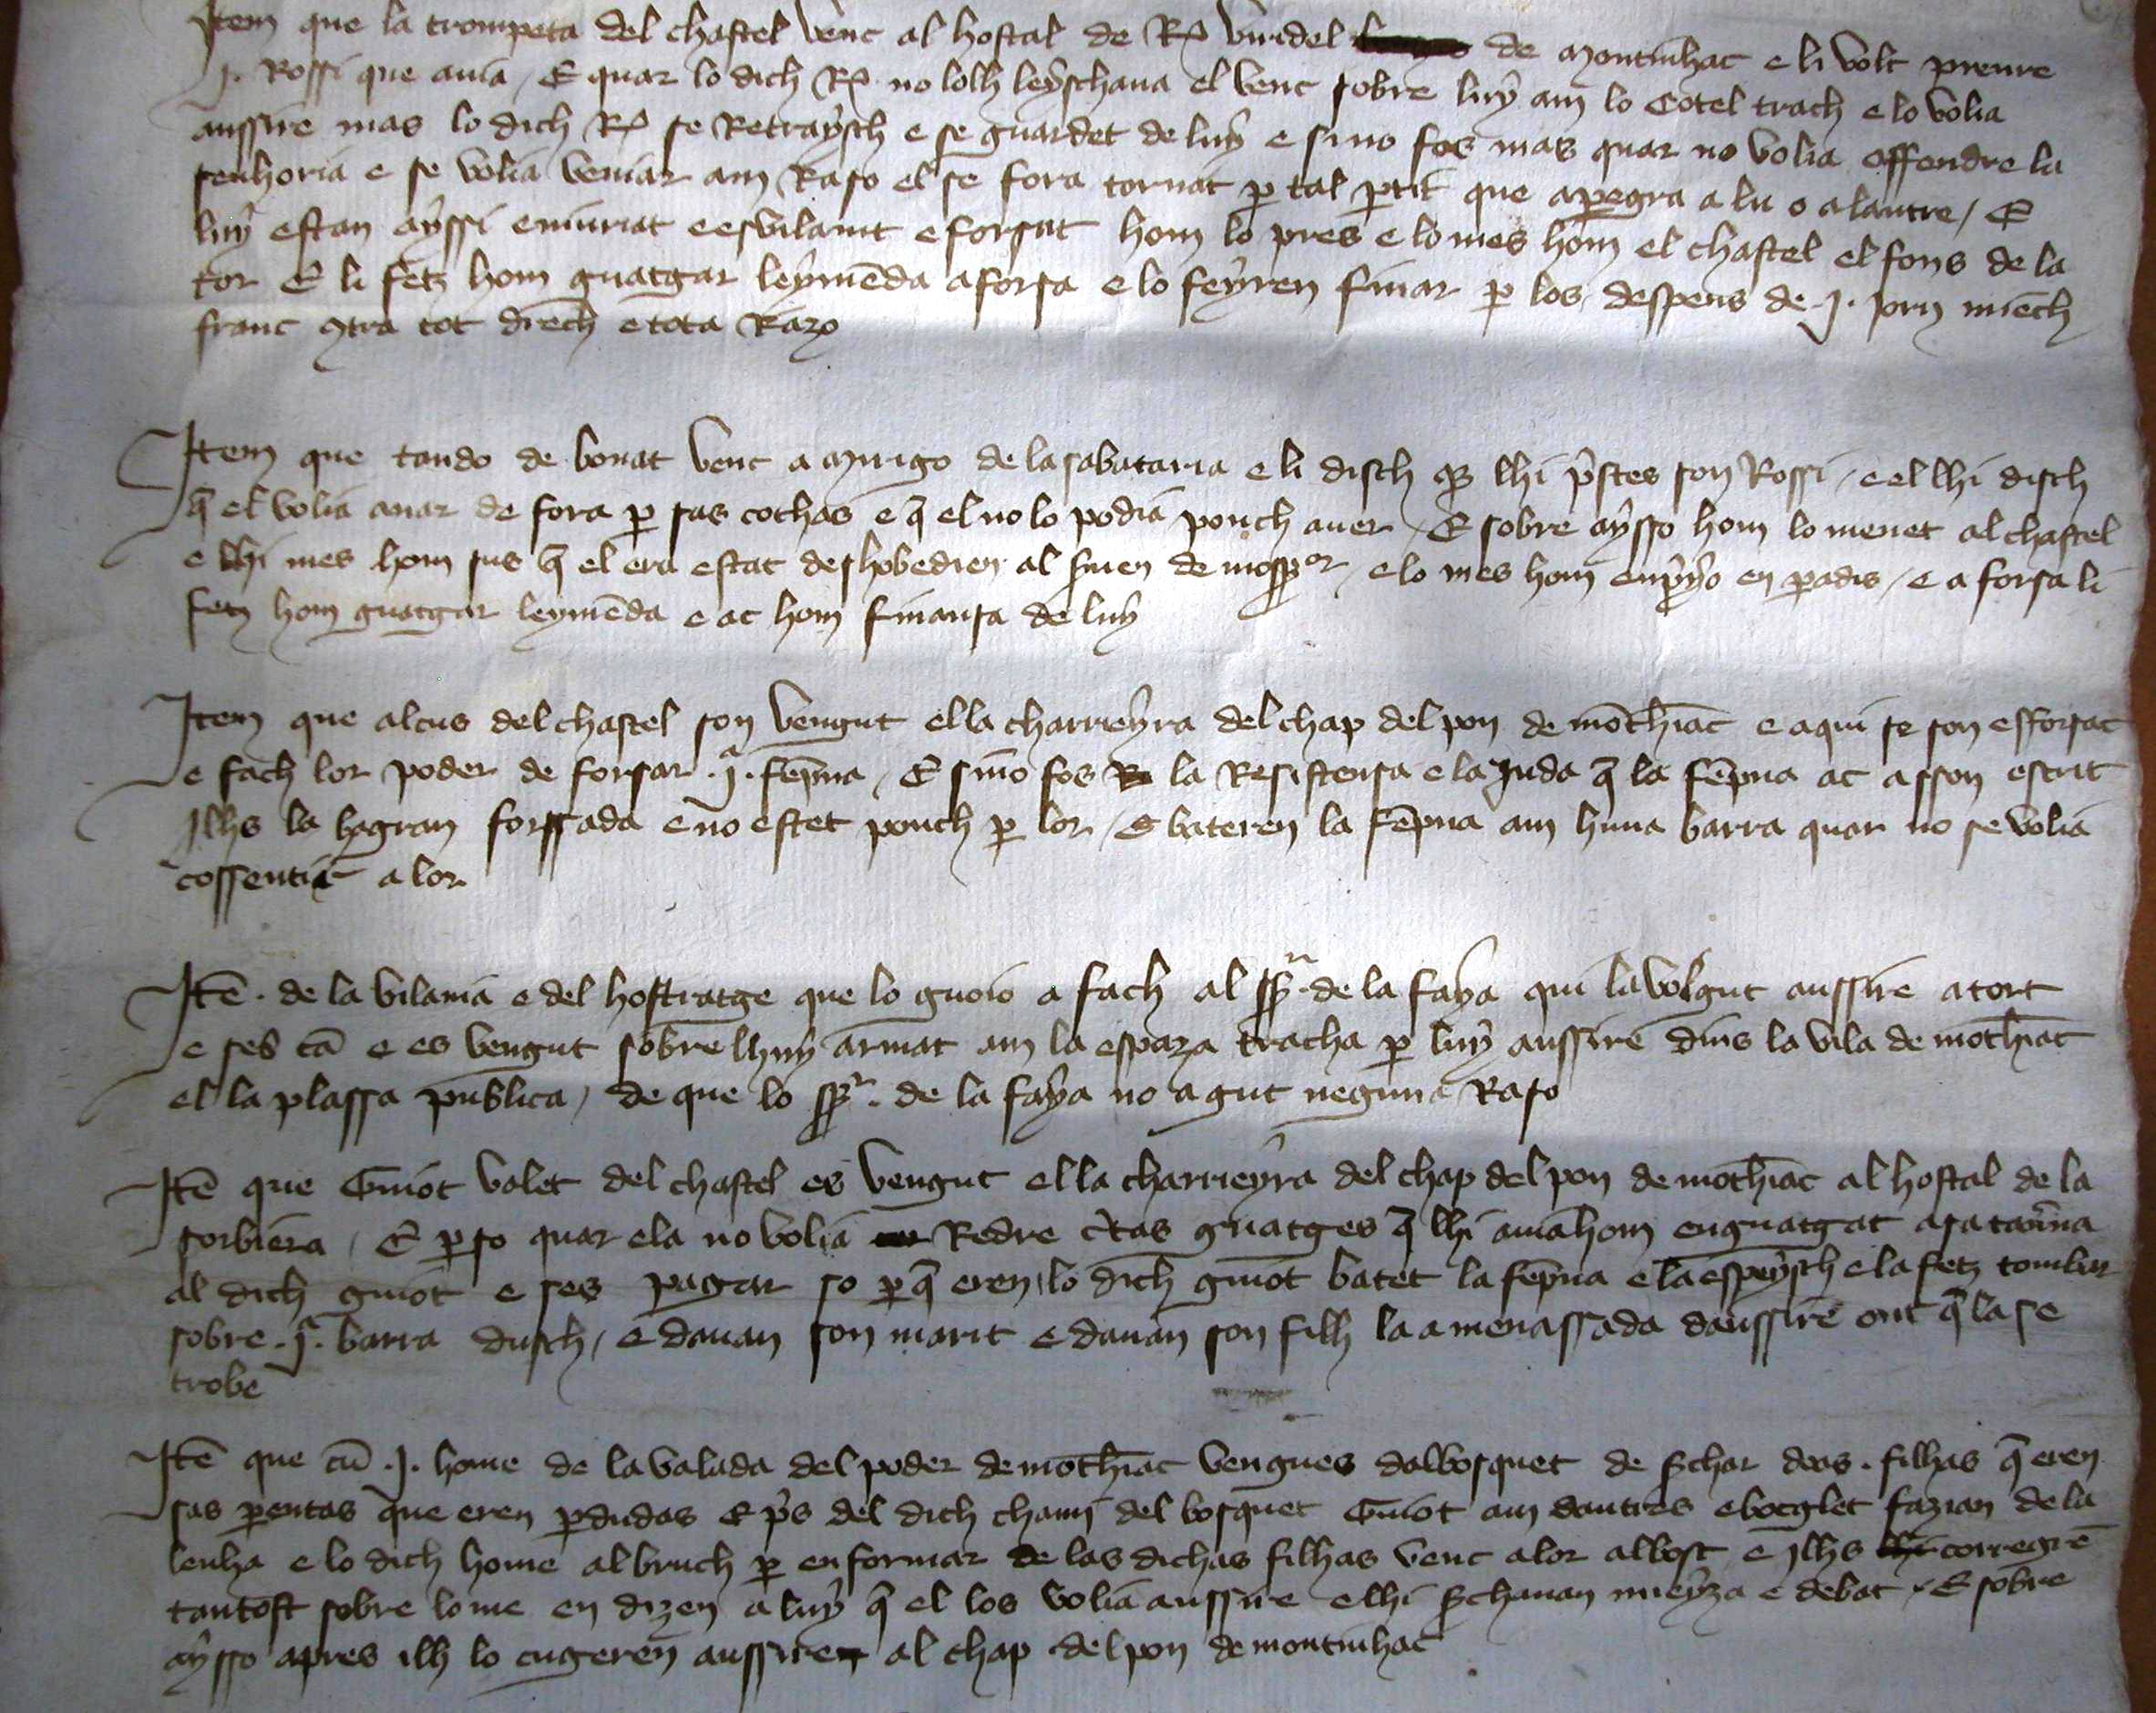 Item que la trompeta del chastel venc al hostal de R. Viridel de Montinhac e li volt prenre
.j. Rossi que avia / E quar lo dich R. no lolh leyschava el venc sobre luy am lo cotel trach e lo volia
aussire mas lo dich R. se Retraysch e se guardet de luy e si no fos mas quar no volia offendre la
senhoria e se volia veniar am Raso el se fora tornat p tal ptit que apegra a lu o a lautre / E
luy estan ayssi eniuriat e esvilanit e forsat hom lo pres e lo mes hom el chastel el fons de la
tor E li fetz hom guatgar leymēda a forsa e lo feyren finar p los despens de .j. jorn miech
franc 9tra tot drech e tota Razo
Item que tando de bonat venc a Murigo de la sabataria e li disch q lhi pstes son Rossi / e el lhi disch
q̄ el volia anar de fora p sas cochas e q̄ el no lo podia ponch aver / E sobre aysso hom lo menet al chastel
e lhi mes hom sus q̄ el era estat deshobedien al de / e lo mes hom en pyo en padis / e a forsa li
fetz hom guatgar leymēda e ac hom finansa de luy
Item que alcus del chastel son vengut el la charrieyra del chap del pon de mōthiac e aqui se son efforsat
e fach lor poder de forsar .jª. fēpna / E sino fos la Resistensa e la Juda q̄ la fēpna ac a sson escrit
Ilhs la hagran forssada e no estet ponch p lor / E bateren la fēpna am huna barra quar no se volia
cossentir a lor
Itē . de la vilania e del hostratge que lo guoio a fach al sr . de la faya qui la volgut aussire a tort
e ses cā e es vengut sobre lhuy armat am la espaza tracha p luy aussire dins la vila de mōthiac
el la plassa publica / de que lo sr . de la faya no a gut neguna Raso
Itē que Guiot valet del chastel es vengut el la charrieyra del chap del pon de mōthiac al hostal de la
sorbiera / E pso quar ela no volia Redre ctas guatges q̄ lhi avia hom enguatgat a sa tavna
al dich guiot e ses pagar so p q̄ eren lo dich guiot batet la fēpna e la espeysch e la fetz tombar
sobre .jª. barra dusch / e davan son marit e davan son filh la a menassada daussire ont q̄ la se
trobe
Itē que cū .J. home de la valada del poder de mōthiac vengues dalbosquet de schar doas . filhas q̄ eren
sas pentas que eren pdudas E ps del dich chami del bosquet Guiot am dautres e bocglet fazian de la
lenha e lo dich home al bruch p enformar de las dichas filhas venc a lor al bosc e ylhs corregrē
tantost sobre lome en dizen a luy q̄ el los volia aussire e lhi schavan mieyza e debat / E sobre
aysso apres ilh lo cugeren aussire al chap del pon de montinhac